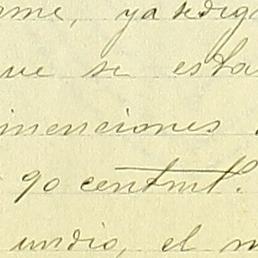 ame, ya se dig
que se esta
menciones
90 centmt.
undio, el m